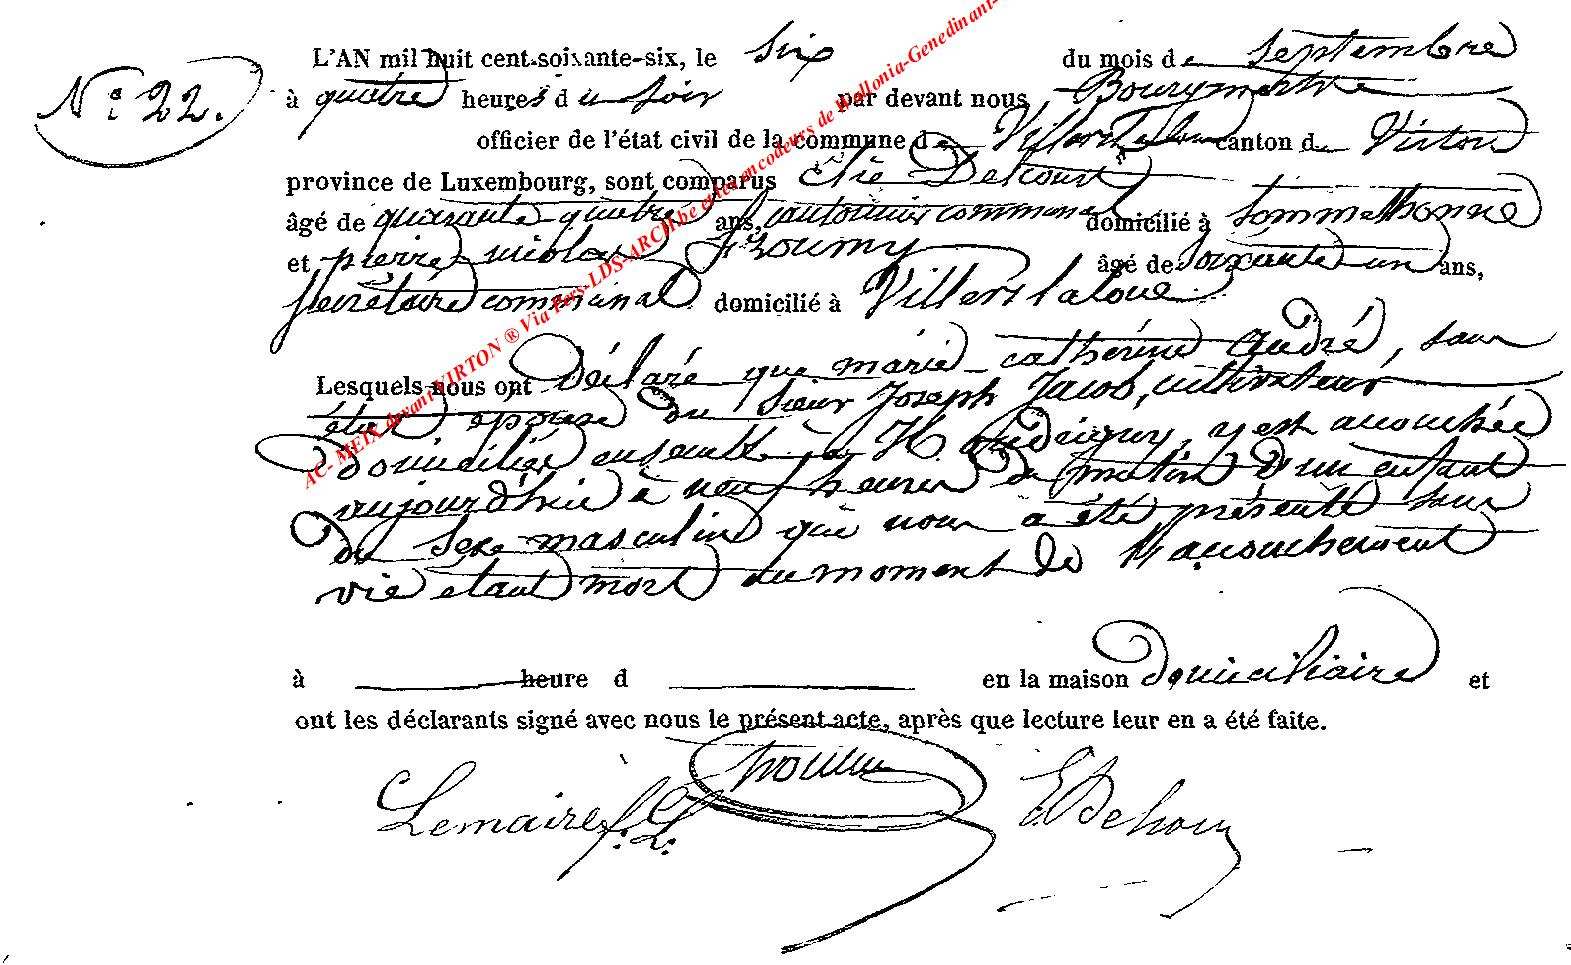 N° 22.
L'AN mil huit cent-soixante-six, le six du mois de septembre
à quatre heures du soir par devant nous, Bourgmestre
officier de l'état civil de la commune de Villers la loue canton de Virton
province de Luxembourg, sont comparus Elie Dehour
âgé de quarante quatre ans, cantonnier communal domicilié à Sommethonne
et pierre nicolas âgé de soixante un ans,
secrétaire communal domicilié à Villers la loue
Lesquels nous ont déclaré que marie-catherine André, sans
état épouse du sieur Joseph Jacob, cultivateur
domiciliés ensemble à Houdrigny, y est accouchée
aujourd'hui à neuf heures du matin d'un enfant
du sexe masculin que nous a été présenté sans
vie etant mort au moment de l'acouchement
à heure d en la maison domiciliaire et
ont les déclarants signé avec nous le présent acte, après que lecture leur en a été faite.
Lemaire E. Dehour
AC- MEIX devant VIRTON ® Via Pers-LDS-ARCH.be et les encodeurs de Wallonia-Genedinant-